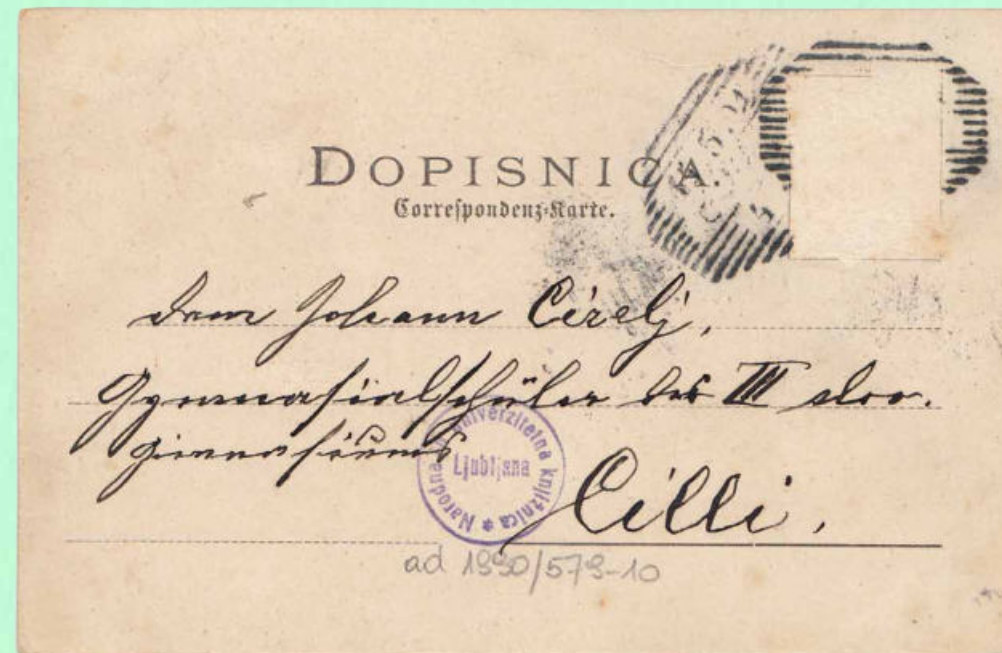 DOPISNICA.
Correspondenz-Karte.
Dem Johann Cirelj,
Gymnasialschüler des III slov.
Gimnasiums
Narodna in univerzitetna knjižnica
Ljubljana
Cilli.
ad 1990/579-10